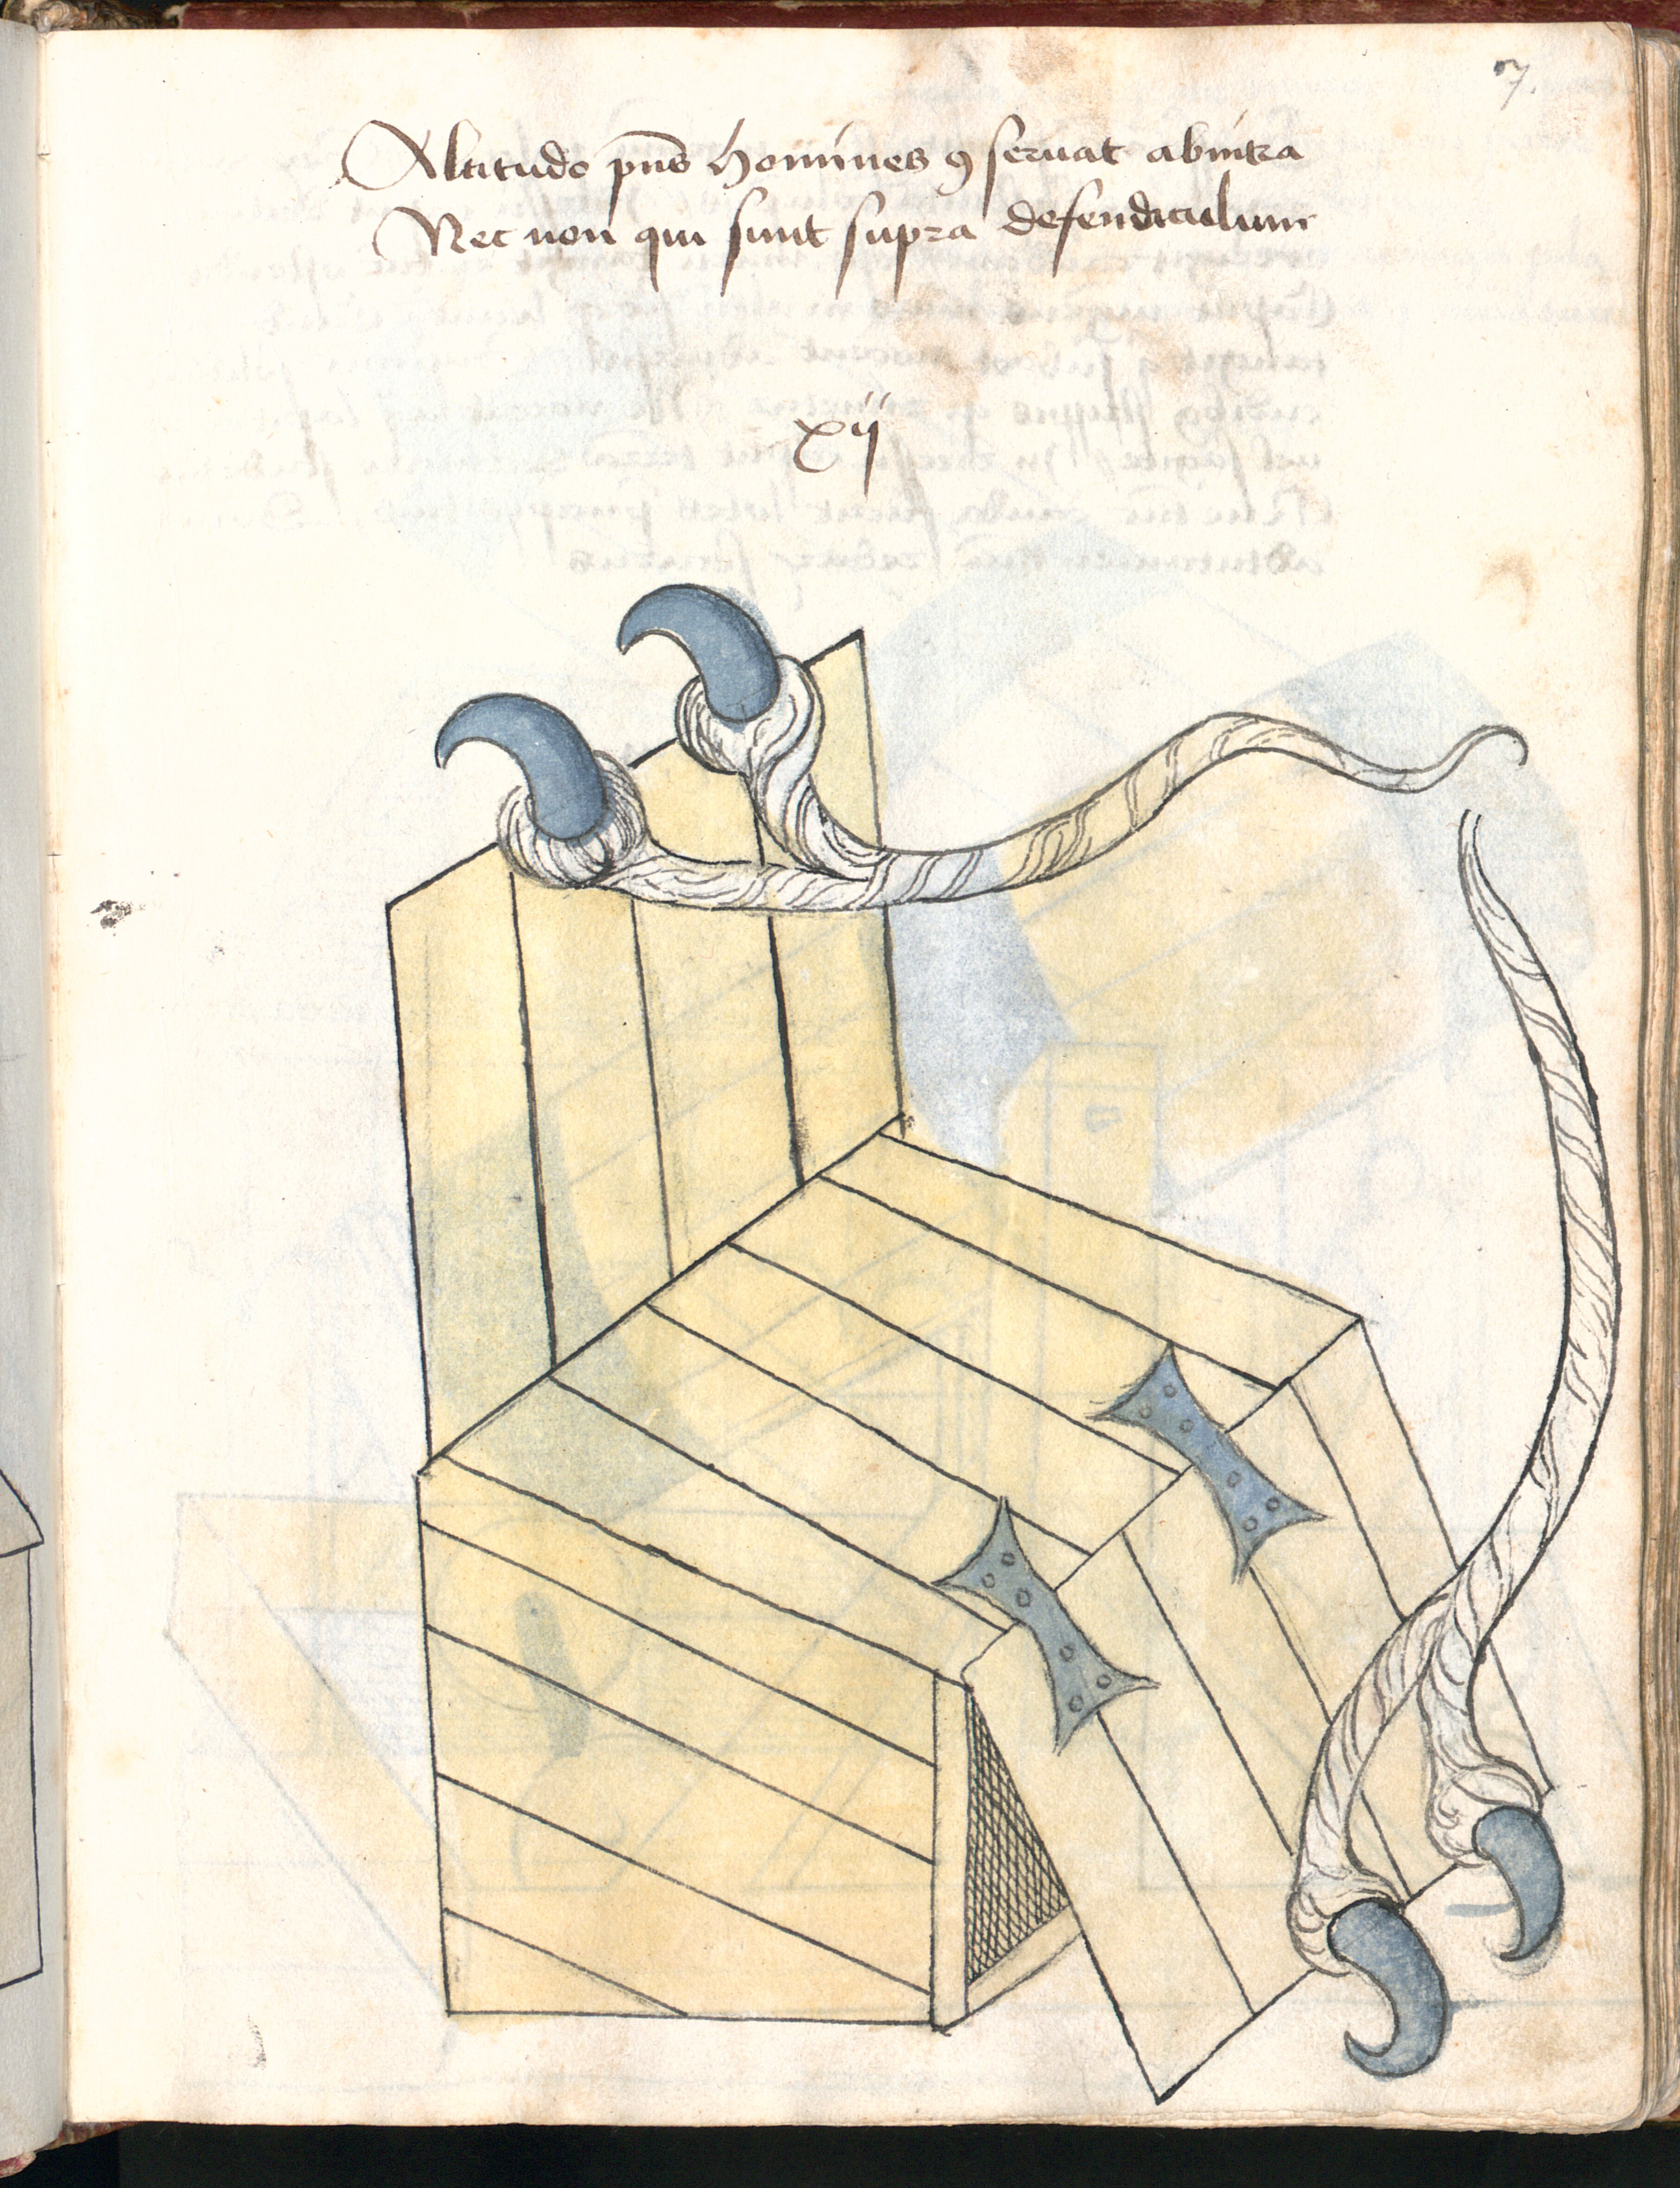 7.
Altitudo pn̄s homines ꝯseruat abintra
Nec non qui sunt supra defendiculum
xij